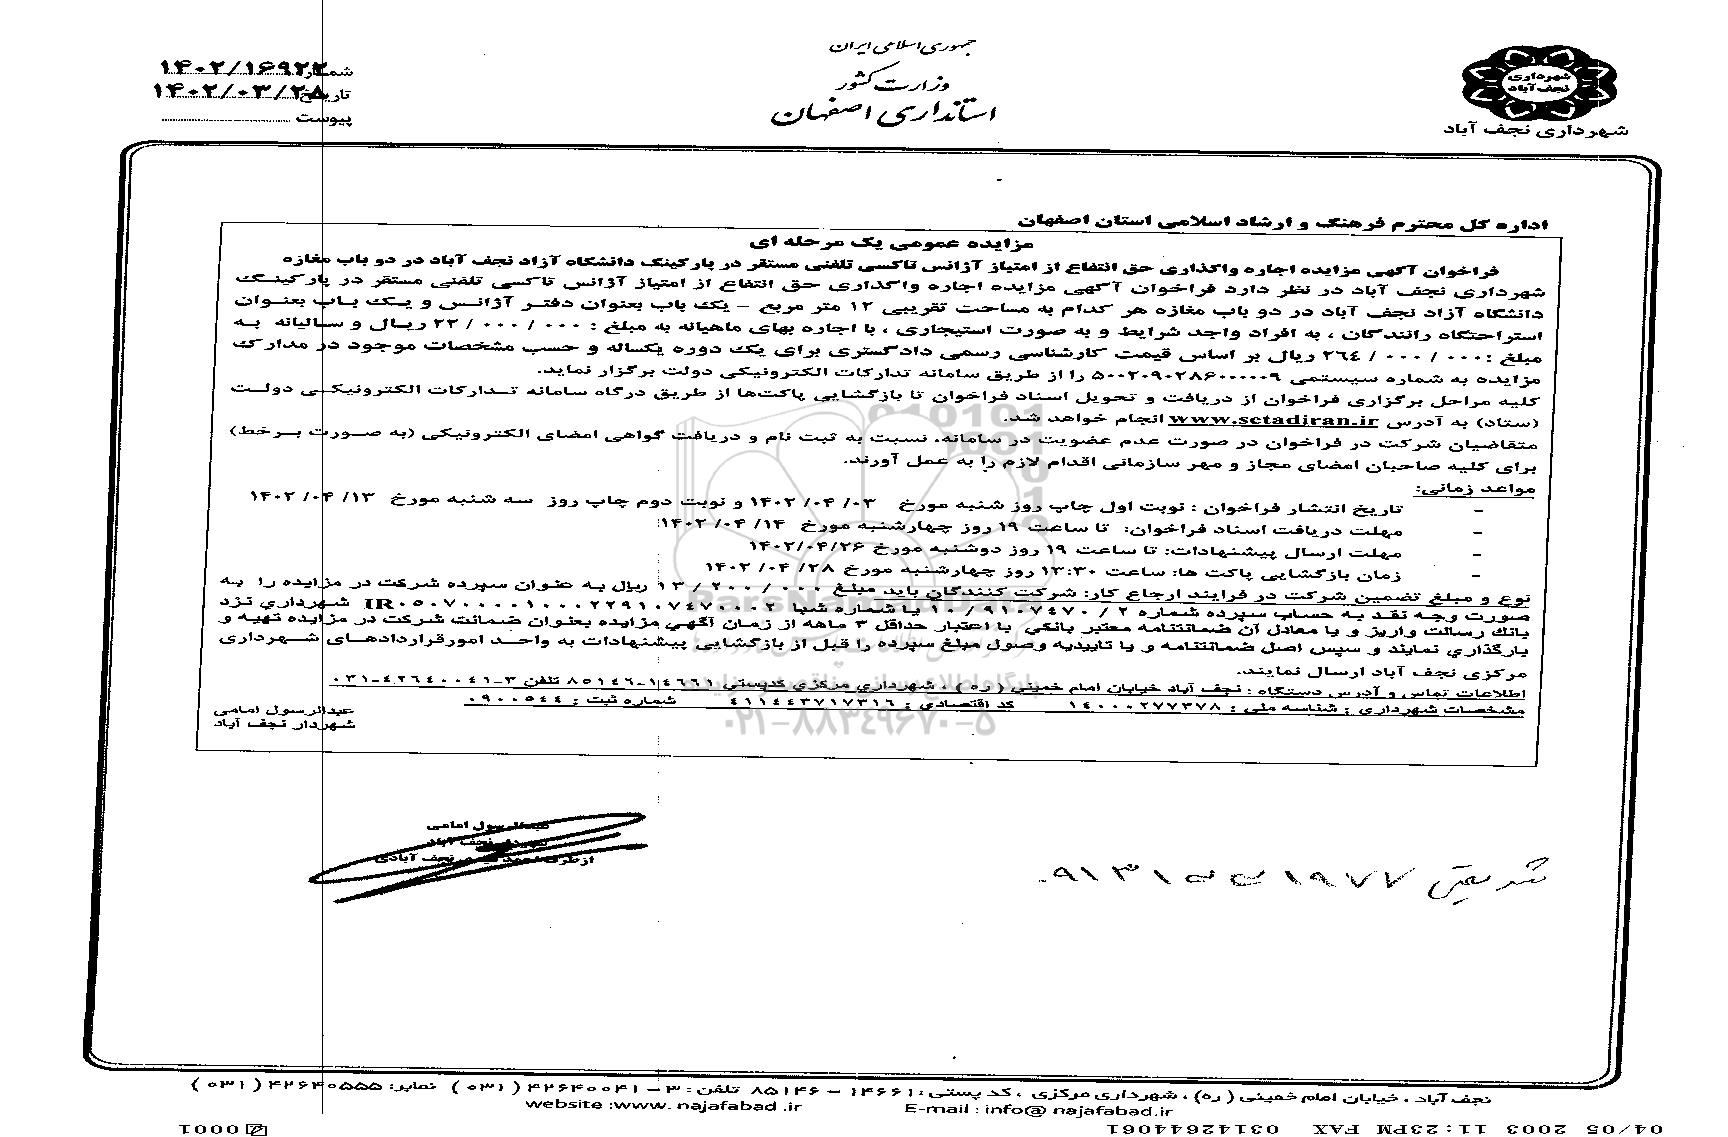 جمهوری اسلامی ایران
وزارت کشور
استانداری اصفهان
شهرداری نجف آباد
شهرداری نجف آباد
شماره ۱۴۰۲/۱۶۹۲۲
تاریخ ۱۴۰۲/۰۳/۲۸
پیوست
اداره کل محترم فرهنگ و ارشاد اسلامی استان اصفهان
مزایده عمومی یک مرحله ای
فراخوان آگهی مزایده اجاره واگذاری حق انتفاع از امتیاز آژانس تاکسی تلفنی مستقر در پارکینگ دانشگاه آزاد نجف آباد در دو باب مغازه
شهرداری نجف آباد در نظر دارد فراخوان آگهی مزایده اجاره واگذاری حق انتفاع از امتیاز آژانس تاکسی تلفنی مستقر در پارکینگ
دانشگاه آزاد نجف آباد در دو باب مغازه هر کدام به مساحت تقریبی ۱۲ متر مربع – یک باب بعنوان دفتر آژانس و یک باب بعنوان
استراحتگاه رانندگان ، به افراد واجد شرایط و به صورت استیجاری ، با اجاره بهای ماهیانه به مبلغ : ۰۰۰ / ۰۰۰ / ۲۲ ریال و سالیانه به
مبلغ : ۰۰۰ / ۰۰۰ / ۲۶۴ ریال بر اساس قیمت کارشناسی رسمی دادگستری برای یک دوره یکساله و حسب مشخصات موجود در مدارک
مزایده به شماره سیستمی ۵۰۰۲۰۹۰۲۸۶۰۰۰۰۰۹ را از طریق سامانه تدارکات الکترونیکی دولت برگزار نماید.
کلیه مراحل برگزاری فراخوان از دریافت و تحویل اسناد فراخوان تا بازگشایی پاکت‌ها از طریق درگاه سامانه تدارکات الکترونیکی دولت
(ستاد) به آدرس www.setadiran.ir انجام خواهد شد.
متقاضیان شرکت در فراخوان در صورت عدم عضویت در سامانه، نسبت به ثبت نام و دریافت گواهی امضای الکترونیکی (به صورت برخط)
برای کلیه صاحبان امضای مجاز و مهر سازمانی اقدام لازم را به عمل آورند.
مواعد زمانی:
- تاریخ انتشار فراخوان : نوبت اول چاپ روز شنبه مورخ ۰۳ /۰۴ /۱۴۰۲ و نوبت دوم چاپ روز سه شنبه مورخ ۱۳ /۰۴ /۱۴۰۲
- مهلت دریافت اسناد فراخوان: تا ساعت ۱۹ روز چهارشنبه مورخ ۱۴ /۰۴ /۱۴۰۲
- مهلت ارسال پیشنهادات: تا ساعت ۱۹ روز دوشنبه مورخ ۱۴۰۲/۰۴/۲۶
- زمان بازگشایی پاکت ها: ساعت ۱۳:۳۰ روز چهارشنبه مورخ ۲۸ /۰۴ /۱۴۰۲
نوع و مبلغ تضمین شرکت در فرایند ارجاع کار: شرکت کنندگان باید مبلغ ۰۰۰ / ۲۰۰ / ۱۳ ریال به عنوان سپرده شرکت در مزایده را به
صورت وجه نقد به حساب سپرده شماره ۲ / ۹۱۰۷۴۷۰ / ۱۰ یا شماره شبا IR۰۵۰۷۰۰۰۰۱۰۰۰۲۲۹۱۰۷۴۷۰۰۰۲ شهرداری نزد
بانک رسالت واریز و یا معادل آن ضمانتنامه معتبر بانکی با اعتبار حداقل ۳ ماهه از زمان آگهی مزایده بعنوان ضمانت شرکت در مزایده تهیه و
بارگذاری نمایند و سپس اصل ضمانتنامه و یا تاییدیه وصول مبلغ سپرده را قبل از بازگشایی پیشنهادات به واحد امورقراردادهای شهرداری
مرکزی نجف آباد ارسال نمایند.
اطلاعات تماس و آدرس دستگاه : نجف آباد خیابان امام خمینی ( ره ) ، شهرداری مرکزی کدپستی ۱۴۶۶۱-۸۵۱۴۶ تلفن ۳-۴۲۶۴۰۰۴۱-۰۳۱
مشخصات شهرداری : شناسه ملی : ۱۴۰۰۰۲۷۷۳۷۸ کد اقتصادی : ۴۱۱۴۴۳۷۱۷۳۱۶ شماره ثبت : ۰۹۰۰۵۴۴
عبدالرسول امامی
شهردار نجف آباد
ParsNamadData
پایگاه اطلاع رسانی مناقصه و مزایده
۰۲۱-۸۸۳۴۹۶۷۰-۵
عبدالرسول امامی
شهردار نجف آباد
شریعتی
نجف آباد ، خیابان امام خمینی ( ره) ، شهرداری مرکزی ، کد پستی : ۱۴۶۶۱ – ۸۵۱۴۶ تلفن : ۳ – ۴۲۶۴۰۰۴۱ ( ۰۳۱ ) نمابر: ۴۲۶۴۰۵۵۵ ( ۰۳۱ )
website :www. najafabad .ir E-mail : info@ najafabad.ir
04/05 2003 11:23PM FAX 03142644061 0001